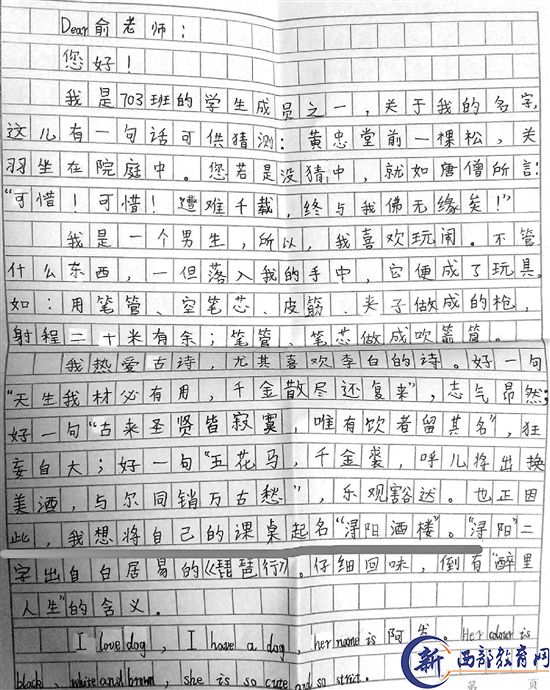 Dear俞老师：
您好！
我是703班的学生成员之一，关于我的名字，
这儿有一句话可供猜测：黄忠堂前一棵松，关
羽坐在院庭中。您若是没猜中，就如唐僧所言：
“可惜！可惜！遭难千载，终与我佛无缘矣！”
我是一个男生，所以，我喜欢玩闹。不管
什么东西，一但落入我的手中，它便成了玩具。
如：用笔管、空笔芯、皮筋、夹子做成的枪，
射程二十米有余；笔管、笔芯做成吹箭筒。
我热爱古诗，尤其喜欢李白的诗。好一句
“天生我材必有用，千金散尽还复来”，志气昂然；
好一句“古来圣贤皆寂寞，唯有饮者留其名”，狂
妄自大；好一句“五花马，千金裘，呼儿将出换
美酒，与尔同销万古愁”，乐观豁达。也正因
此，我想将自己的课桌起名“浔阳酒楼”。“浔阳”二
字出自白居易的《琵琶行》。仔细回味，倒有“醉里
人生”的含义。
I love dog, I have a dog, her name is 阿发. Her colour is
black, white and brown, she is so cute and so strict.
新 西部教育网
第 页